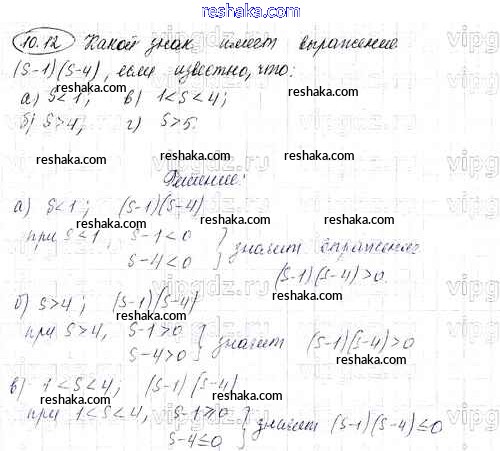 reshaka.com
10.12 Какой знак имеет выражение
(S-1)(S-4), если известно, что:
reshaka.com reshaka.com
а) S<1; в) 1<S<4;
б) S>4, г) S>5.
reshaka.com reshaka.com reshaka.com
Решение:
а) S<1; (S-1)(S-4)
при S<1, S-1<0 } значит выражение
S-4<0
(S-1)(S-4)>0.
reshaka.com reshaka.com reshaka.com
б) S>4; (S-1)(S-4)
при S>4, S-1>0 } значит (S-1)(S-4)>0
S-4>0
reshaka.com reshaka.com reshaka.com
в) 1<S<4; (S-1)(S-4)
при 1<S<4, S-1≥0 } значит (S-1)(S-4)≤0
S-4≤0
reshaka.com reshaka.com reshaka.com